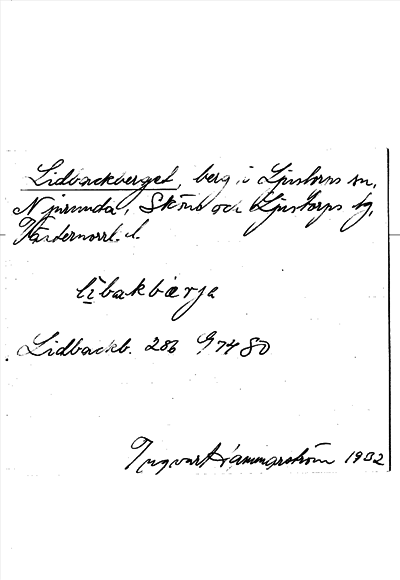 Lidbackberget, berg i Ljustorps sn,
Njurunda, Sköns och Ljustorps tg,
Västernorrl. l.
lībakbærja
Lidbackb. 286 G 7480
Ingvar Hammarström 1932